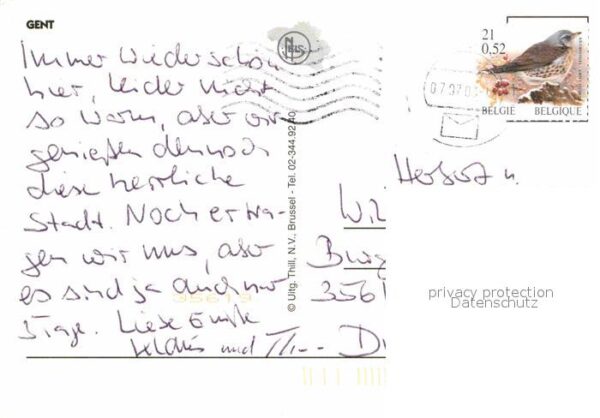 GENT
Immer wieder schön
hier, leider nicht
so warm, aber wir
genießen dennoch
diese herrliche
Stadt. Noch ertra-
gen wir uns, aber
es sind ja auch nur
5 Tage. Liebe Grüße
und
© Uitg. Thill, N.V., Brussel - Tel. 02-344.92.40
NELS
21
0,52
BELGIE BELGIQUE
07 07 0
Herbert u.
Wil
Burg
3561
D
35619
privacy protection
Datenschutz